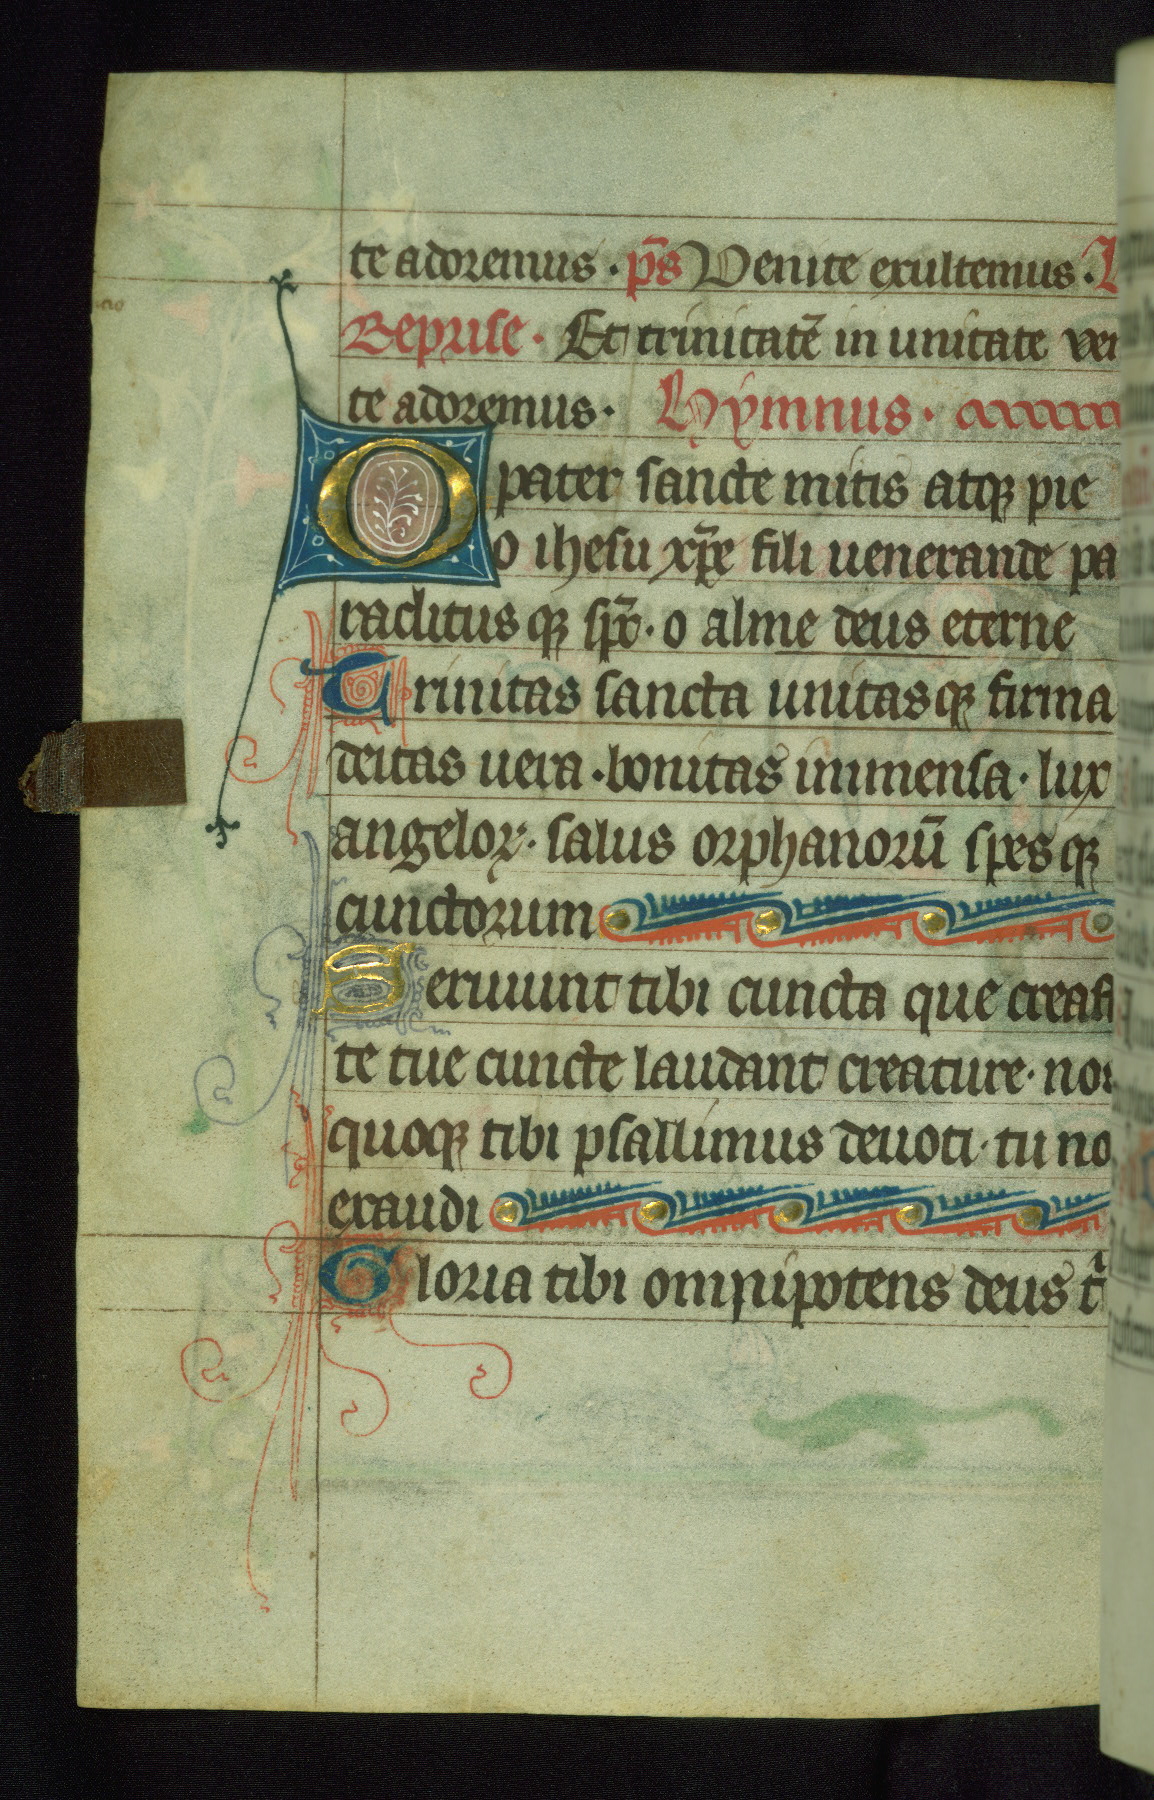 te adoremus · p̄s Venite exultemus ·
Reprise · Et trinitatē in unitate
te adoremus · Hymnus ·
O pater sancte mitis atqꝫ pie
o ihesu xp̄e fili uenerande pa
raclitus qꝫ sp̄c · o alme deus eterne
Trinitas sancta unitas qꝫ firma
deitas uera · bonitas inmensa · lux
angeloꝝ · salus orphanorū spes qꝫ
cunctorum
Seruiunt tibi cuncta que creasti
te tue cuncte laudant creature · nos
quoqꝫ tibi psallimus deuoti · tu no
exaudi
Gloria tibi omnipotens deus t